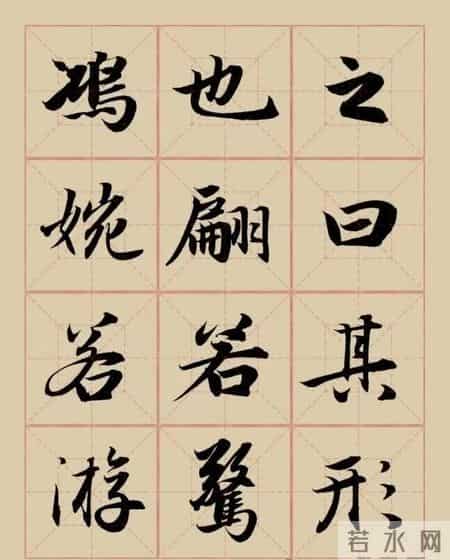 之曰其形
也翩若驚
鴻婉若游
若水网